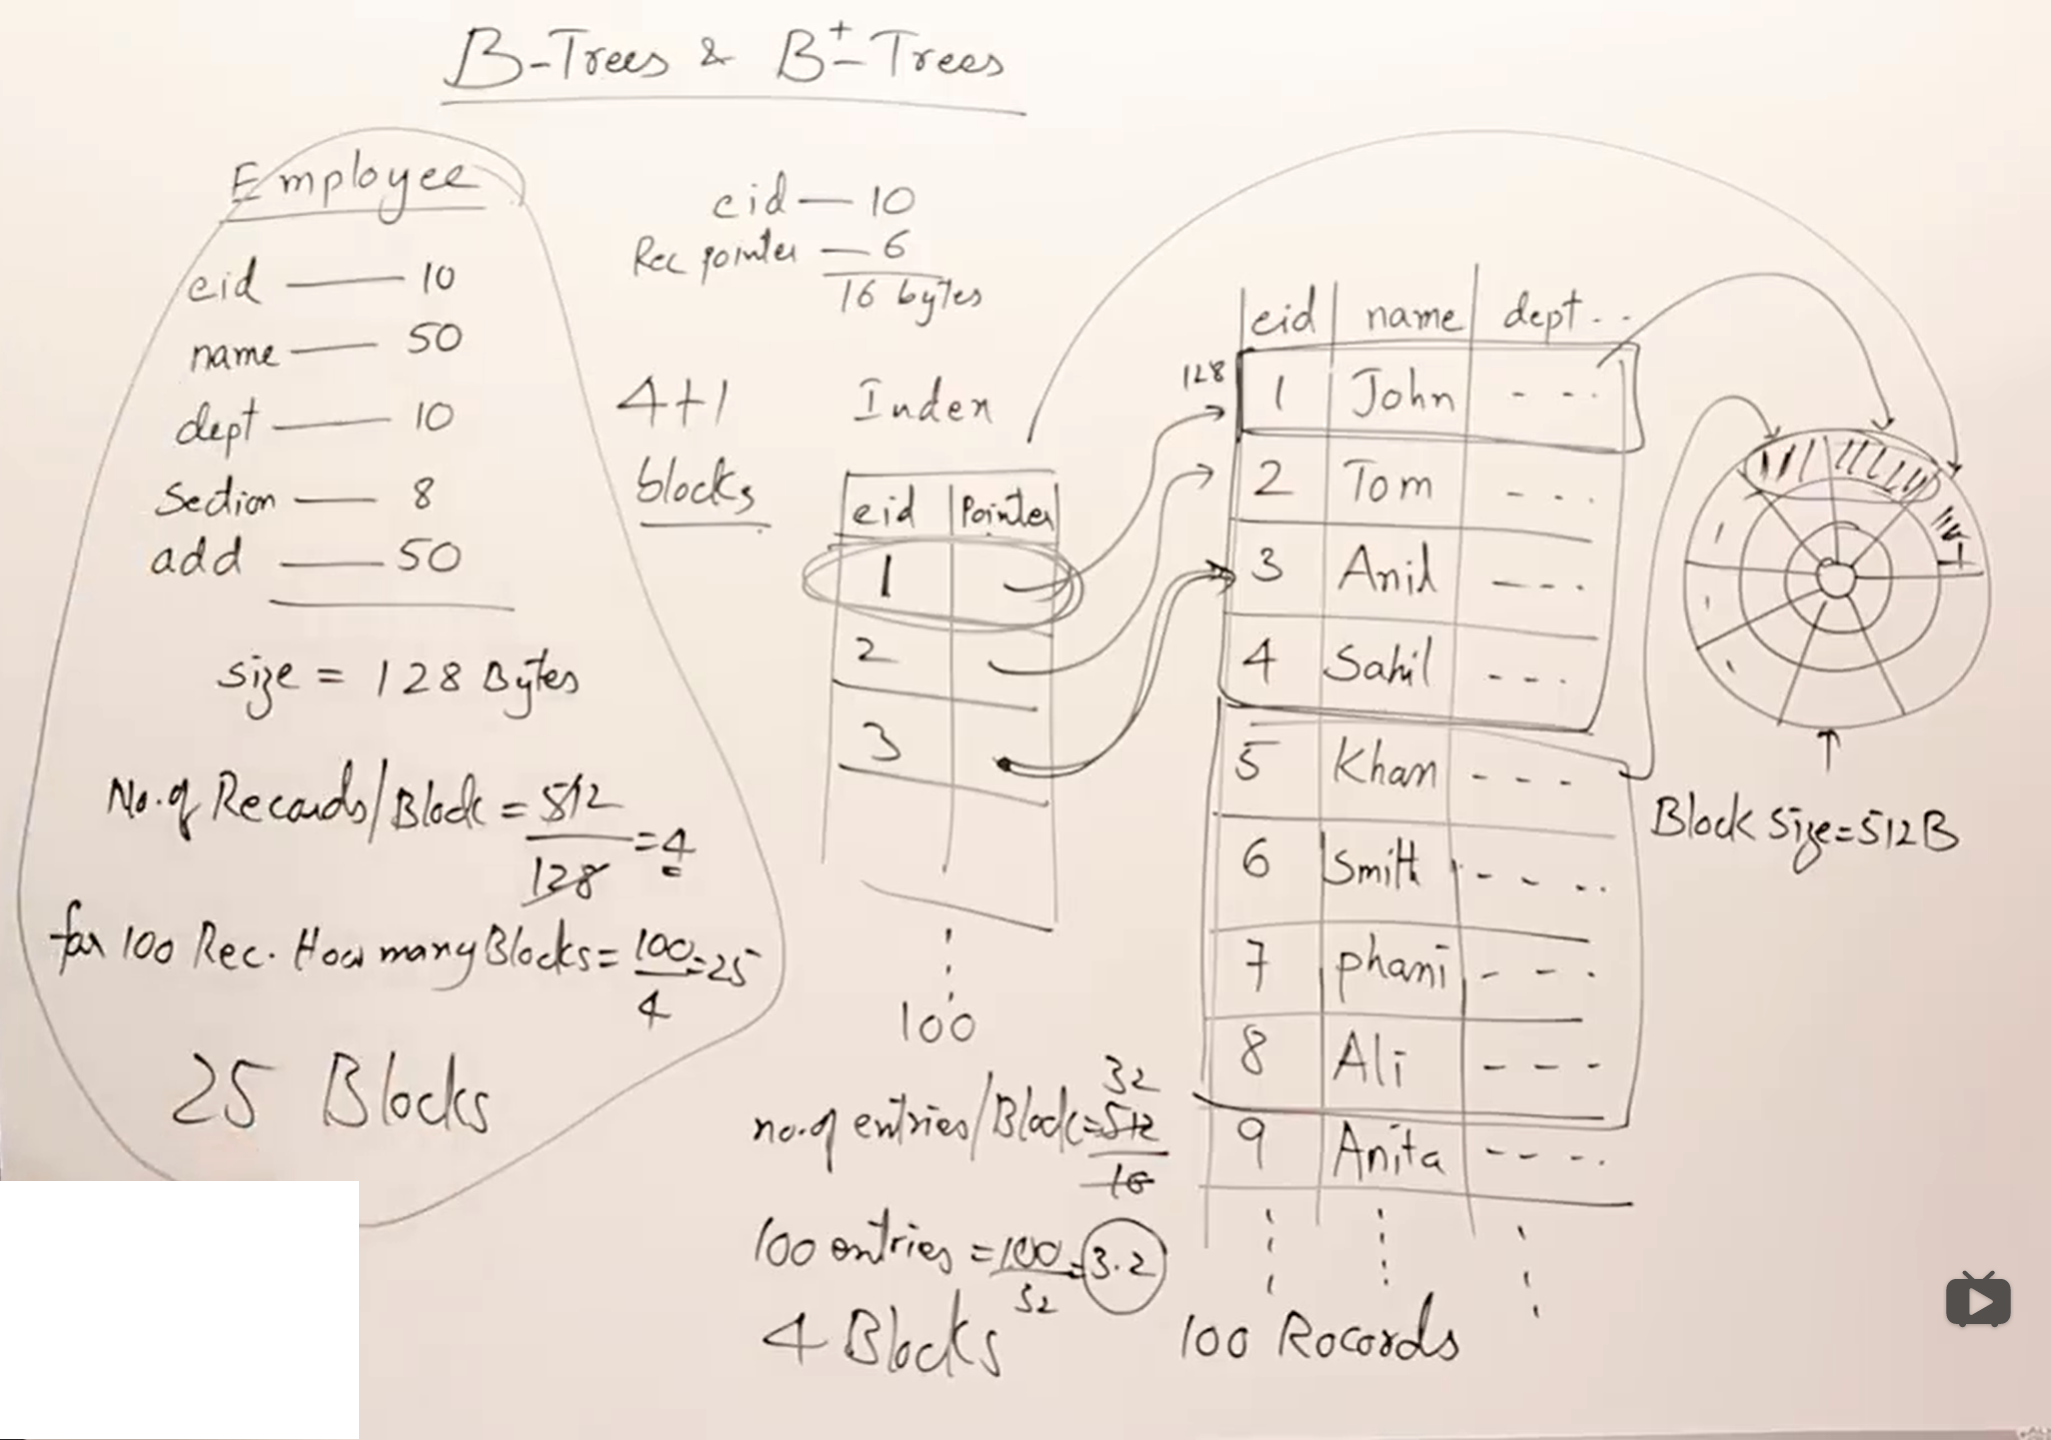 B-Trees & B+-Trees
Employee
eid — 10
name — 50
dept — 10
Section — 8
add — 50
size = 128 Bytes
No. of Records/Block = 512/128 = 4
for 100 Rec. How many Blocks = 100/4 = 25
25 Blocks
eid — 10
Rec pointer — 6
16 bytes
4+1
blocks
Index
eid | Pointer
1
2
3
100
no. of entries/Block = 512/16
32
100 entries = 100/32 = 3.2
4 Blocks
eid | name | dept . .
128
1 John - - -
2 Tom - - -
3 Anil - - -
4 Sahil - - -
5 Khan - - -
6 Smith - - - -
7 phani - - -
8 Ali - - -
9 Anita - - - -
100 Rocords
Block size=512B